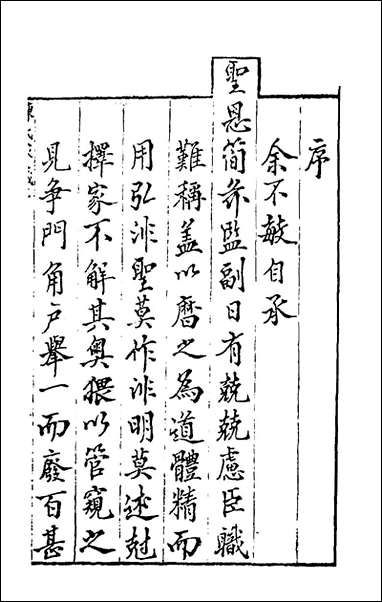 序
余不敏自承
聖恩簡畀監副日有兢兢慮臣職
難稱蓋以曆之為道體精而
用弘非聖莫作非明莫述尅
擇家不解其奧猥以管窺之
見争門角户舉一而廢百甚